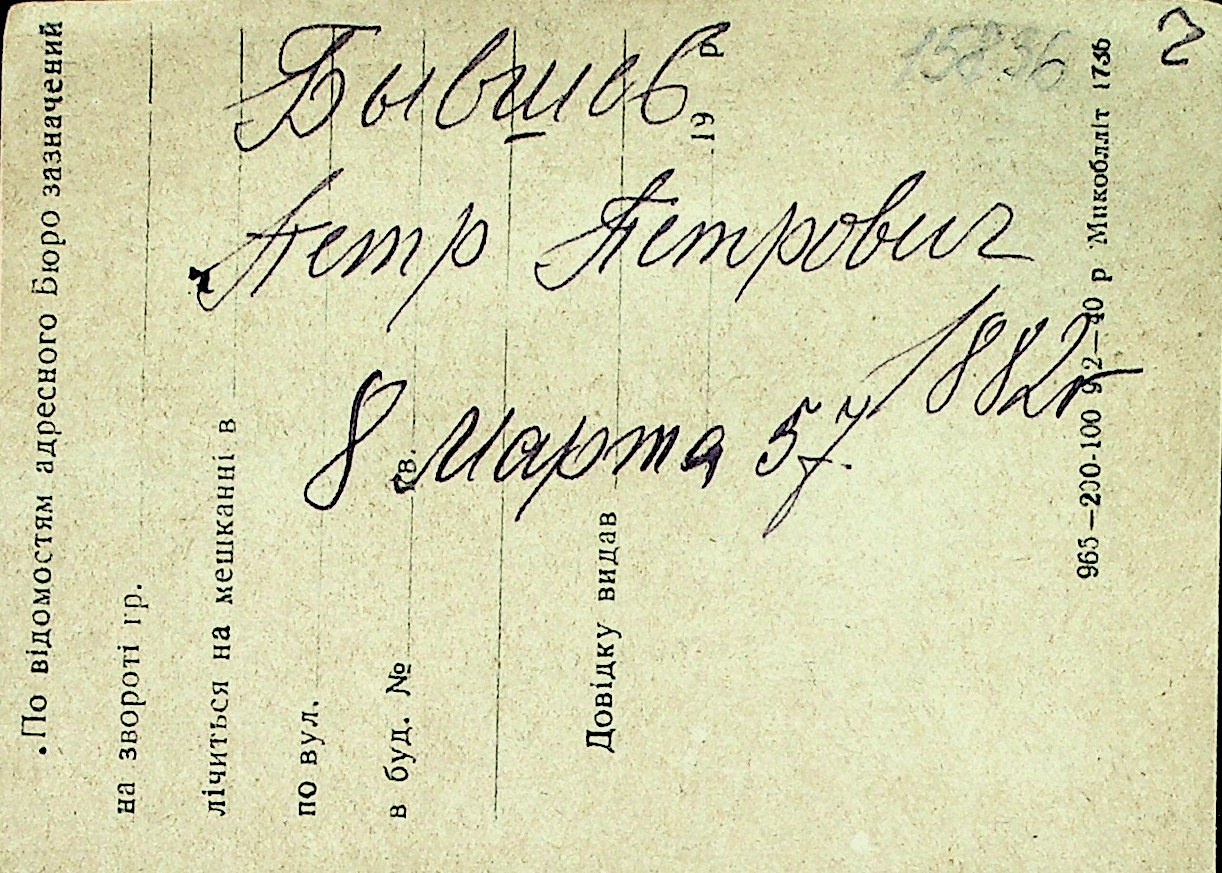 15836
2
Бывшев
Петр Петрович
1882 г
8 Марта 57
.По відомостям адресного Бюро зазначений
на звороті гр.
лічиться на мешканні в
по вул.
в буд. № кв.
Довідку видав
19 р
965—200-100 9/2—40 р Микобліт 1736